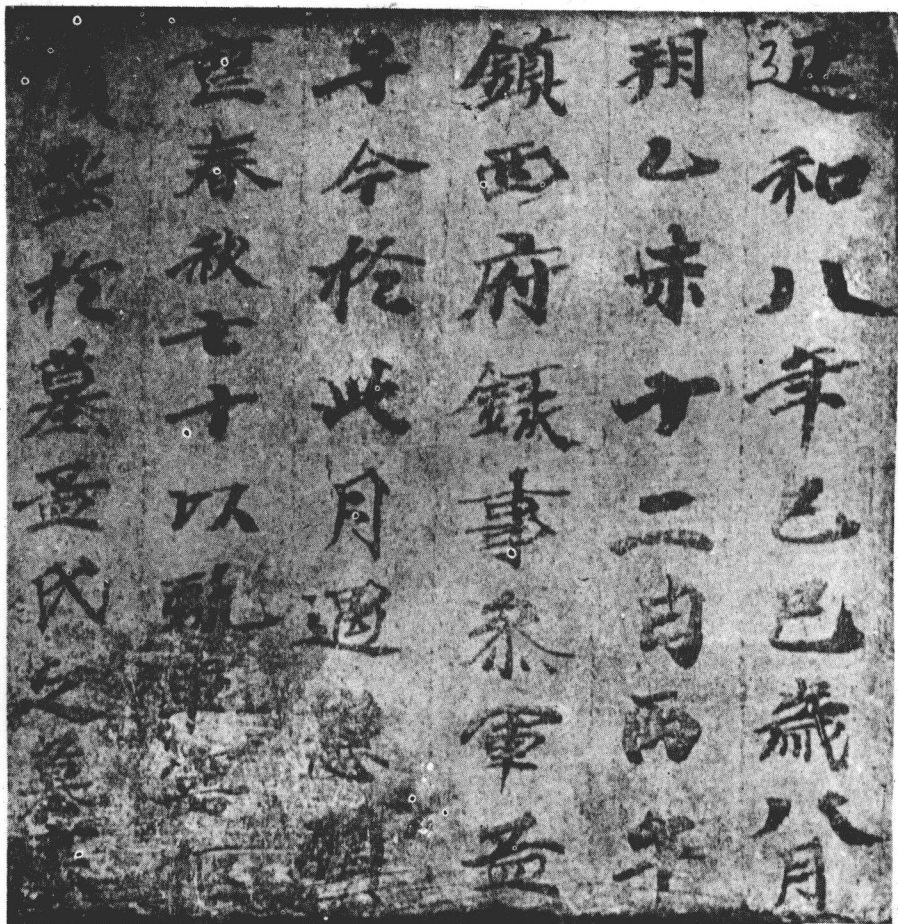 延和八年己巳歲八月
朔乙妹十二日丙午
鎮西府錄事叅軍孟
子今於此月遇患殞
喪春秋七十以虬車靈
葬於墓孟氏之墓表